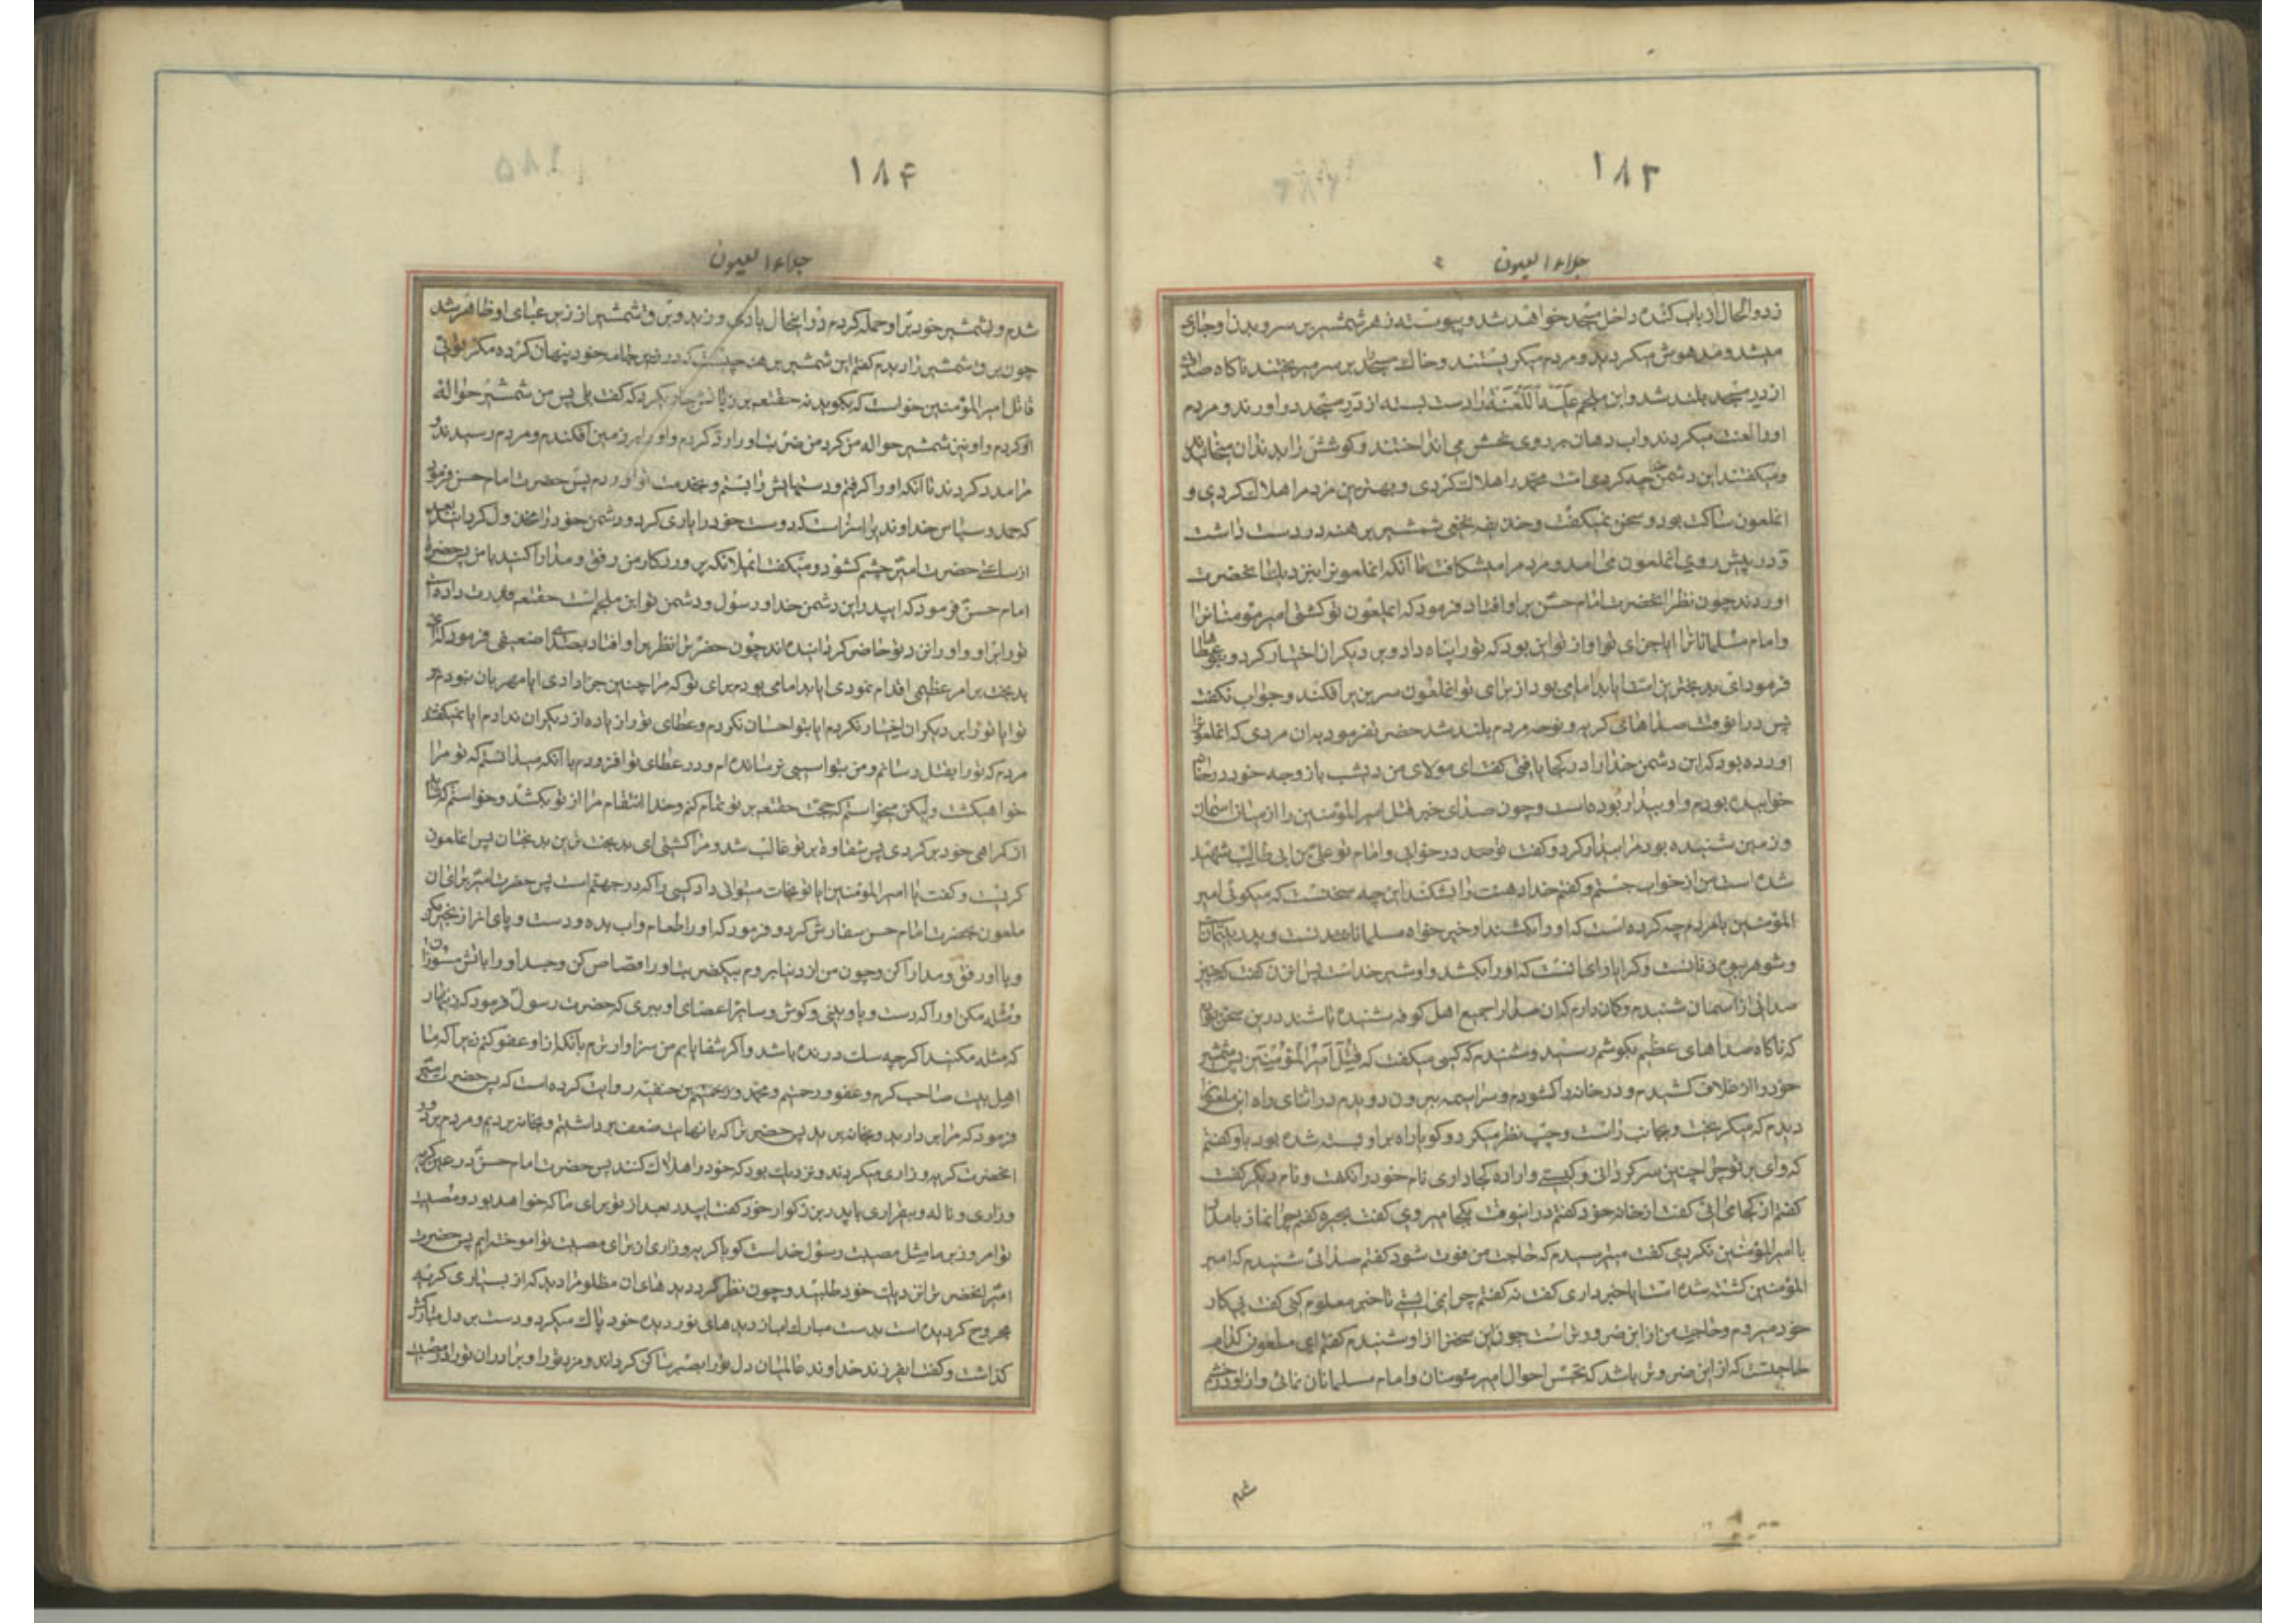 ۱۸۳
جلاء العیون
زدو الحال از باب کنده داخل مسجد خواهد شد و پیوسته زهر شمشیر بر سر و بدن او جاری
میشد و مدهوش میکردید و مردم میکریستند و خاک مسجد بر سر میریختند ناکاه صدائی
از در مسجد بلند شد و ابن ملجم علیه اللعنه را دست بسته از در مسجد در اوردند و مردم
اورا لعنت میکردند و اب دهان بر روی نحسش می انداختند و کوشتش را بدندان میخائیدند
و میکفتند ای دشمن خدا چه کردی امت محمد را هلاک کردی و بهترین مردم را هلاک کردی و
انملعون ساکت بود و سخن نمیکفت و حذیفه نخعی شمشیر برهنه در دست داشت
و در پیش روی انملعون می امد و مردم را میشکافت تا آنکه انملعونرا بنزدیک انحضرت
اوردند چون نظر انحضرت امام حسن بر او افتاد فرمود که ایملعون تو کشتی امیر مؤمنانرا
و امام مسلمانانرا ایا جزای او از تو این بود که تورا پناه داد و بر دیکران اختیار کرد و بتو عطاها
فرمود ای بدبخترین امت ایا بد امامی بود از برای تو انملعون سر بزیر افکند و جواب نکفت
پس درانوقت صداهای کریه و نوحه مردم بلند شد حضرت فرمود بدان مردی که انملعونرا
اورده بود که این دشمن خدا را در کجا یافتی کفت ای مولای من دیشب با زوجه خود در خانه
خوابیده بودم و او بیدار بوده است و چون صدای خبر قتل امیر المؤمنین را از میان اسمان
و زمین شنیده بود مرا بیدار کرد و کفت تو در خوابی و امام تو علی بن ابی طالب شهید
شده است من از خواب جستم و کفتم خدا دهنت را بشکند این چه سخنست که میکوئی امیر
المؤمنین با مردم چه کرده است که او را بکشند او خیر خواه مسلمانانست و پدر یتیمان
و شوهر بیوه زنانست و کرا یارای انست که اورا بکشد و او شیر خداست پس ان زن کفت که من نیز
صدائی از اسمان شنیدم و کمان دارم که ان صدا را جمیع اهل کوفه شنیده باشند درین سخن بودیم
که ناکاه صداهای عظیم بکوشم رسید و شنیدم که کسی میکفت که قتل امیر المؤمنین پس شمشیر
خود را از غلاف کشیدم و در خانه را کشودم و سراسیمه بیرون دویدم در اثنای راه این ملعونرا
دیدم که میکریخت و بجانب راست و چپ نظر میکرد و کویا راه بر او بسته شده بود باو کفتم
که وای بر تو چرا چنین سرکردانی و کیستی و اراده کجا داری نام خود را نکفت و نام دیکر کفت
کفتم از کجا می ائی کفت از خانه خود کفتم در اینوقت بکجا میروی کفت بحیره کفتم چرا نماز بامداد
با امیر المؤمنین نکردی کفت میترسیدم که حاجت من فوت شود کفتم صدائی شنیدم که امیر
المؤمنین کشته شده است ایا خبر داری کفت نه کفتم چرا نمی ایستی تا خبر معلوم کنی کفت پی کار
خود میروم و حاجت من از این ضرورتر است چون این سخنرا از او شنیدم کفتم ای ملعون کدام
حاجتست که از این ضرورتر باشد که تجسس احوال امیر مؤمنان و امام مسلمانان نمائی و از او در خشم
شدم
۱۸۴
جلاء العیون
شدم و بشمشیر خود بر او حمله کردم در اینحال بادی وزید و برق شمشیر از زیر عبای او ظاهر شد
چون برق شمشیر را دیدم کفتم این شمشیر برهنه چیست که در زیر جامه خود پنهان کرده مکر توئی
قاتل امیر المؤمنین خواست که بکوید نه حقتعه بر زبانش جاری کرد که کفت بلی پس من شمشیر حواله
او کردم و او نیز شمشیر حواله من کرد من ضربت اورا رد کردم و اورا بر زمین افکندم و مردم رسیدند و
مرا مدد کردند تا آنکه اورا کرفتم و دستهایش را بستم و بخدمت تو اوردم پس حضرت امام حسن فرمود
که حمد و سپاس خداوندیرا سزاست که دوست خود را یاری کرد و دشمن خود را مخذول کردانید بعد
از ساعتی حضرت امیر چشم کشود و میکفت ایملائکه پروردکار من رفق و مدارا کنید با من پس حضرت
امام حسن فرمود که ای پدر این دشمن خدا و رسول و دشمن تو ابن ملجم است حقتعه قدرت داده است
تورا بر او و اورا نزد تو حاضر کردانیده اند چون حضرت را نظر بر او افتاد بصدای ضعیفی فرمود که ای
بدبخت بر امر عظیمی اقدام نمودی ایا بد امامی بودم برای تو که مرا چنین جزا دادی ایا مهربان نبودم بر
تو ایا تورا بر دیکران اختیار نکردم ایا بتو احسان نکردم و عطای تورا زیاده از دیکران ندادم ایا نمیکفتند
مردم که تورا بقتل رسانم و من بتو اسیبی نرسانده ام و در عطای تو افزودم با آنکه میدانستم که تو مرا
خواهی کشت ولیکن میخواستم که حجت حقتعه بر تو تمام کنم و خدا انتقام مرا از تو بکشد و خواستم که شاید
از کمراهی خود بر کردی پس شقاوة بر تو غالب شد و مرا کشتی ای بدبخت ترین بدبختان پس انملعون
کریست و کفت یا امیر المؤمنین ایا تو نجات میتوانی داد کسی را که در جهنم است پس حضرت امیر برای ان
ملعون بحضرت امام حسن سفارش کرد و فرمود که اورا طعام و اب بده و دست و پای اورا در زنجیر مکن
و با او رفق و مدارا کن و چون من از دنیا بروم بیکضربت اورا قصاص کن و جسد اورا باتش مسوزان
و مثله مکن اورا که دست و پا و بینی و کوش و سایر اعضای او ببری که حضرت رسول فرمود که زینهار
که مثله مکنید اکرچه سک درنده باشد و اکر شفا یابم من سزاوارترم بآنکه از او عفو کنم زیرا که ما
اهل بیت صاحب کرم و عفو و رحمتیم و محمد بن حنفیه روایت کرده است که پس حضرت
فرمود که مرا بردارید و بخانه برید پس حضرترا که بانهایت ضعف برداشتیم و بخانه بردیم و مردم بر دور
انحضرت کریه و زاری میکردند و نزدیک بود که خود را هلاک کنند پس حضرت امام حسن در عین کریه
و زاری و ناله و بیقراری با پدر بزرکوار خود کفت ای پدر بعد از تو برای ما که خواهد بود و مصیبت
تو امروز بر ما مثل مصیبت رسول خداست کویا کریه و زاری از برای مصیبت تو اموخته ایم پس حضرت
امیر انحضرترا نزدیک خود طلبید و چون نظر کرد دیدهای ان مظلومرا دید که از بسیاری کریه
مجروح کردیده است بدست مبارک اب از دیدهای نور دیده خود پاک میکرد و دست بر دل مبارکش
کذاشت و کفت ایفرزند خداوند عالمیان دل تورا بصبر ساکن کرداند و مزد تورا و برادران تورا در مصیبت